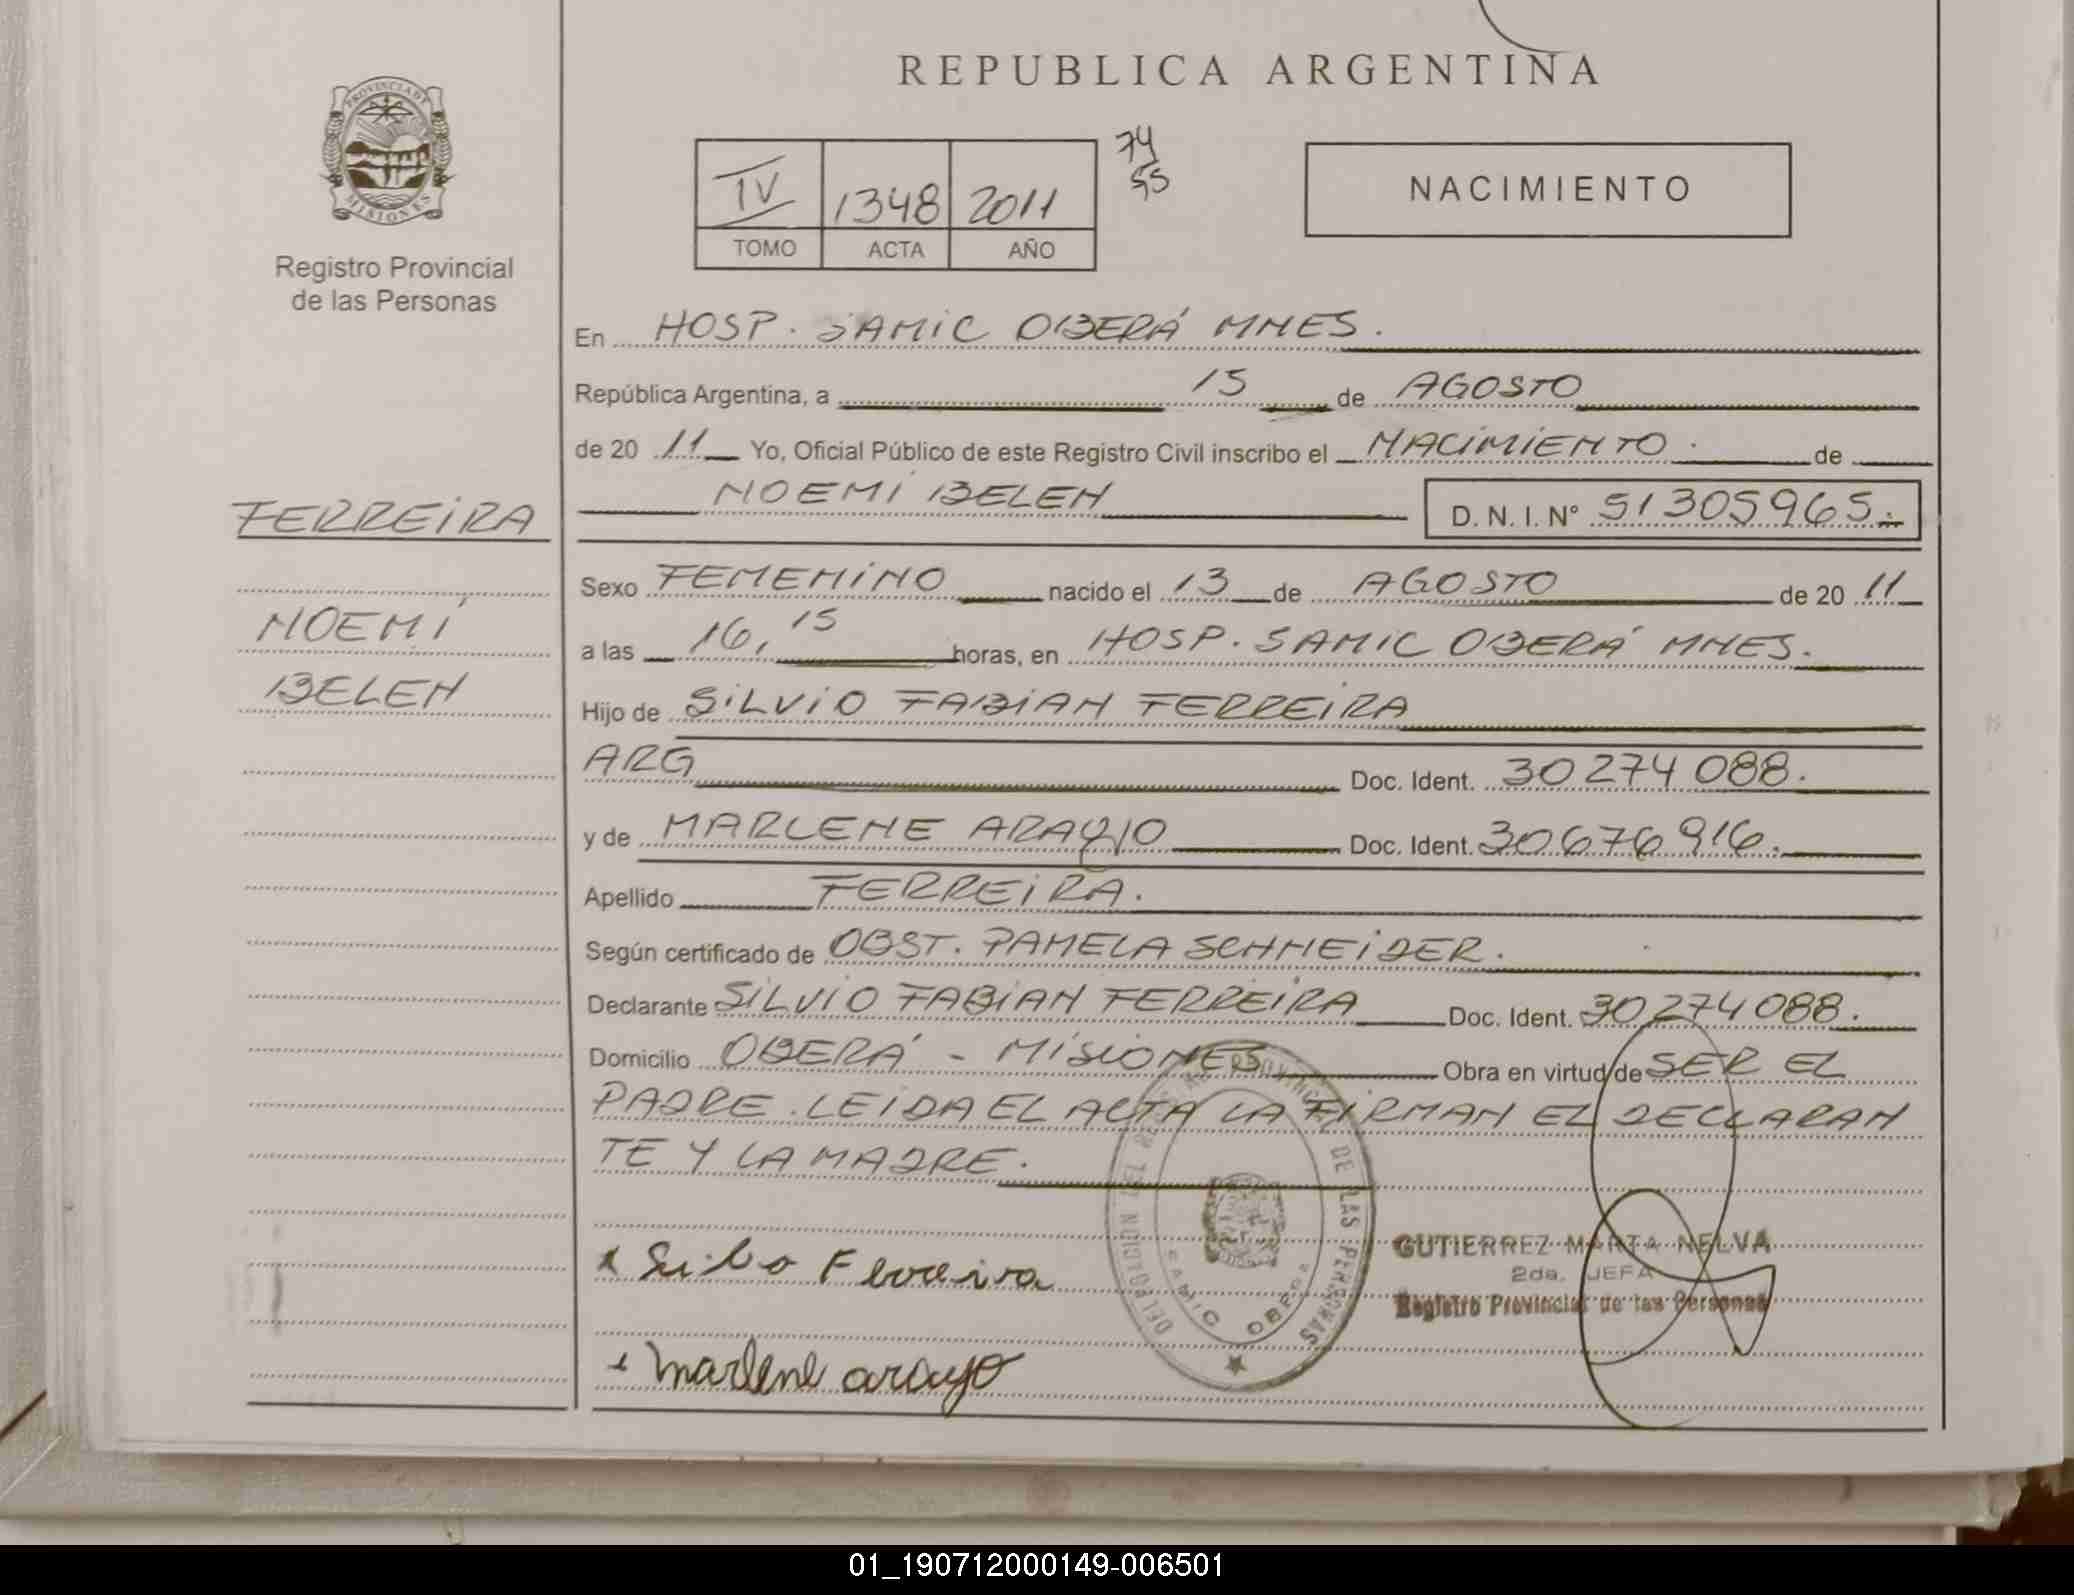 REPUBLICA ARGENTINA
PROVINCIA DE MISIONES
Registro Provincial
de las Personas
IV 1348 2011
TOMO ACTA AÑO
74
55
NACIMIENTO
En HOSP. SAMIC OBERÁ MNES.
República Argentina, a 15 de AGOSTO
de 20 11 Yo, Oficial Público de este Registro Civil inscribo el NACIMIENTO. de
NOEMI BELEN D. N. I. Nº 51305965.-
FERREIRA
NOEMÍ
BELEN
Sexo FEMENINO nacido el 13 de AGOSTO de 20 11
a las 16,15 horas, en HOSP. SAMIC OBERÁ MNES.
Hijo de SILVIO FABIAN FERREIRA
ARG Doc. Ident. 30274088.
y de MARLENE ARAYJO Doc. Ident. 30676916.
Apellido FERREIRA.
Según certificado de OBST. PAMELA SCHNEIDER.
Declarante SILVIO FABIAN FERREIRA Doc. Ident. 30274088.
Domicilio OBERÁ - MISIONES Obra en virtud de SER EL
PADRE. LEIDA EL ACTA LA FIRMAN EL DECLARAN
TE Y LA MADRE.
DE LAS PERSONAS
DELEGACION
SAMIC OBERA
GUTIERREZ MARTA NELVA
2da. JEFA
Registro Provincial de las Personas
x Silvo Ferreira
x Marlene arayo
01_190712000149-006501